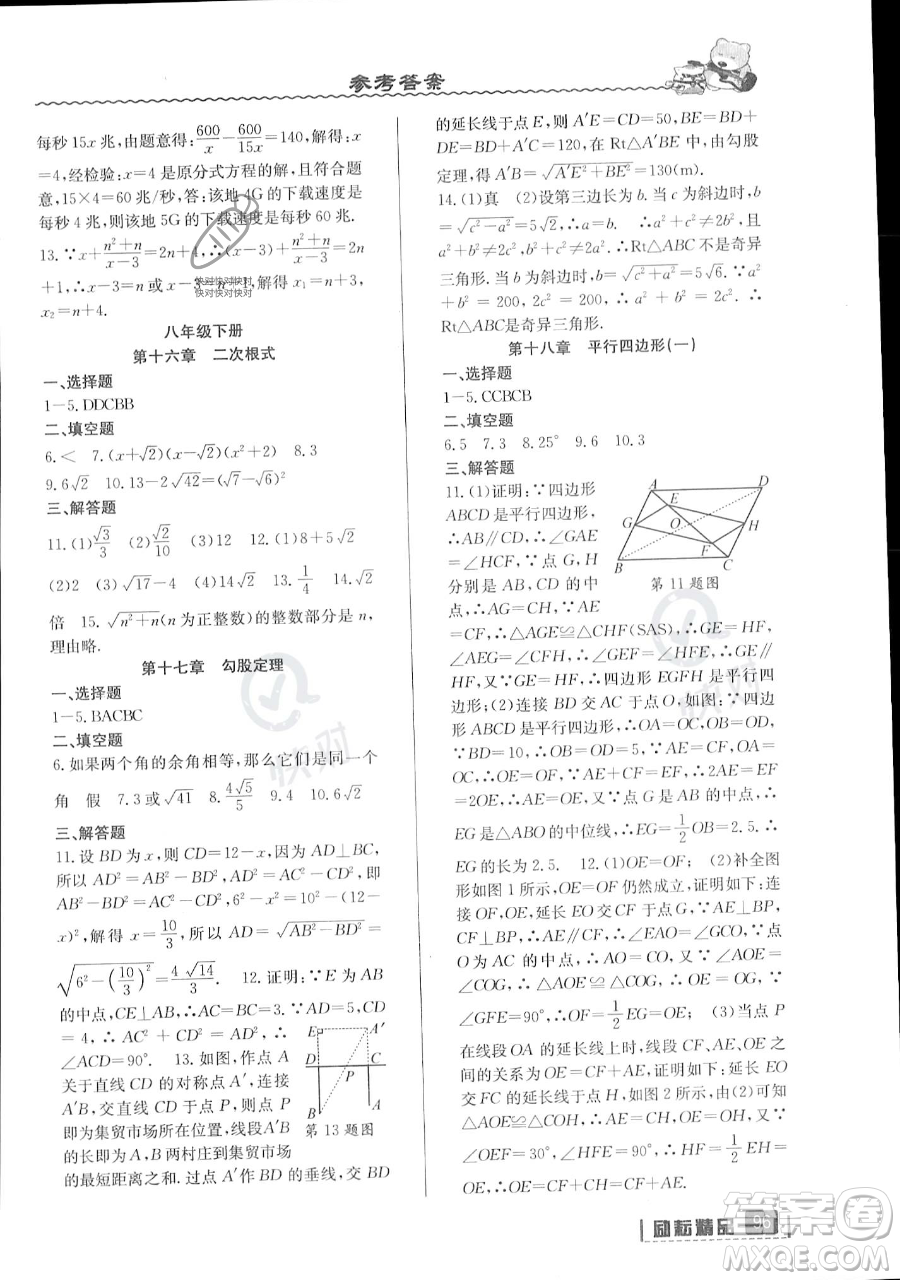 参考答案
每秒 15x 兆,由题意得:600/x－600/15x＝140,解得:x
＝4,经检验:x＝4 是原分式方程的解,且符合题
意,15×4＝60 兆/秒,答:该地 4G 的下载速度是
每秒 4 兆,则该地 5G 的下载速度是每秒 60 兆.
13.∵x＋(n²＋n)/(x－3)＝2n＋4,∴(x－3)＋(n²＋n)/(x－3)＝2n
＋1,∴x－3＝n 或 x－3＝n＋1,∴x₁＝n＋3,
x₂＝n＋4.
快对快对快对
快对快对快对
八年级下册
第十六章 二次根式
一、选择题
1－5.DDCBB
二、填空题
6.＜ 7.(x＋√2)(x－√2)(x²＋2) 8.3
9.6√2 10.13－2√42＝(√7－√6)²
三、解答题
11.(1)√3/3 (2)√2/10 (3)√17－√15 12.(1)8＋3√5
(2)2 (3)√17－4 (4)20 13.1/4 14.√2
倍 15.√(n²＋n)(n 为正整数)的整数部分是 n,
理由略.
第十七章 勾股定理
一、选择题
1－5.BACBC
二、填空题
6.如果两个角的余角相等,那么它们是同一个
角 假 7.3 或√41 8.4√5/5 9.4 10.6√2
三、解答题
11.设 BD 为 x,则 CD＝12－x,因为 AD⊥BC,
所以 AD²＝AB²－BD²,AD²＝AC²－CD²,即
AB²－BD²＝AC²－CD²,6²－x²＝10²－(12－
x)²,解得 x＝10/3,所以 AD＝√(AB²－BD²)＝
√(6²－(10/3)²)＝4√14/3. 12.证明:∵E 为 AB
的中点,CE⊥AB,∴AC＝BC＝3.∵AD＝5,CD
＝4,∴AC²＋CD²＝AD²,∴
∠ACD＝90°. 13.如图,作点 A
关于直线 CD 的对称点 A′,连接
A′B,交直线 CD 于点 P,则点 P
即为集贸市场所在位置,线段A′B
的长即为A,B 两村庄到集贸市场
的最短距离之和. 过点 A′作 BD 的垂线,交 BD
E A′
D C
P
B
第 13 题图
的延长线于点 E,则 A′E＝CD＝50,BE＝BD＋
DE＝BD＋A′C＝120,在 Rt△A′BE 中,由勾股
定理,A′B＝√(A′E²＋BE²)＝130(m).
14.(1)真 (2)设第三边长为 b. 当 c 为斜边时,b
＝√(c²－a²)＝5√2,∴a＝b. ∴a²＋c²≠2b²,且
a²＋b²≠2c².∴Rt△ABC 不是奇异
三角形. 当 b 为斜边时,b＝√(c²＋a²)＝5√6.∵a²
＋b²＝200,2c²＝200,∴a²＋b²＝2c².∴
Rt△ABC是奇异三角形.
第十八章 平行四边形(一)
一、选择题
1－5.CCBCB
二、填空题
6.5 7.3 8.25° 9.6 10.3
三、解答题
11.(1)证明:∵四边形
ABCD 是平行四边形,∴
AB∥CD,∴∠GAE
＝∠HCF,∵点 G,H
分别是 AB,CD 的中
点,∴AG＝CH,∵AE
A D
E
G O H
F
B C
第 11 题图
＝CF,∴△AGE≌△CHF(SAS),∴GE＝HF,
∠AEG＝∠CFH,∴∠GEF＝∠HFE,∴
GE∥HF,又∵GE＝HF,∴四边形 EGFH 是平行
四边形;(2)连接 BD 交 AC 于点 O,如图:∵四边
形 ABCD 是平行四边形,∴OA＝OC,OB＝OD,
∵BD＝10,∴OB＝OD＝5,∵AE＝CF,OA＝
OC,∴OE＝OF,∵AE＋CF＝EF,∴2AE＝EF
＝2OE,∴AE＝OE,又∵点 G 是 AB 的中点,∴
EG是△ABO 的中位线,∴EG＝1/2OB＝2.5.∴
EG 的长为 2.5. 12.(1)OE＝OF; (2)补全图
形如图 1 所示,OE＝OF 仍然成立,证明如下:连
接 OF,OE,延长 EO 交 CF 于点 G,∵AE⊥BP,
CF⊥BP,∴AE∥CF,∴∠EAO＝∠GCO,∵点
O为 AC 的中点,∴AO＝CO,又∵∠AOE＝
∠COG,∴△AOE≌△COG,∴OG＝OE,∵
∠GFE＝90°,∴OF＝1/2EG＝OE; (3)当点 P
在线段 OA 的延长线上时,线段 CF,AE,OE 之
间的关系为 OE＝CF＋AE,证明如下:延长 EO
交 FC 的延长线于点 H,如图 2 所示,由(2)可知
△AOE≌△COH,∴AE＝CH,OE＝OH,又∵
∠OEF＝30°,∠HFE＝90°,∴HF＝1/2EH＝
OE,∴OE＝CF＋CH＝CF＋AE.
励耘精品 95
快对
答案圈
MXQE.COM